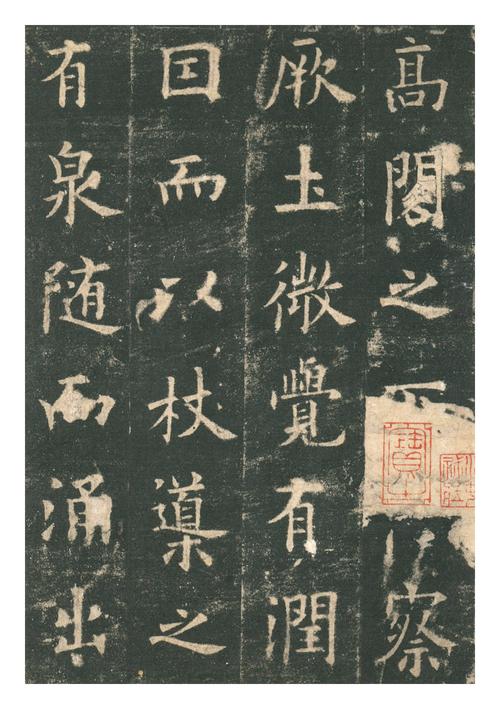 髙閣之察
厥土微覺有潤
囙而以杖導之
有泉随而涌出